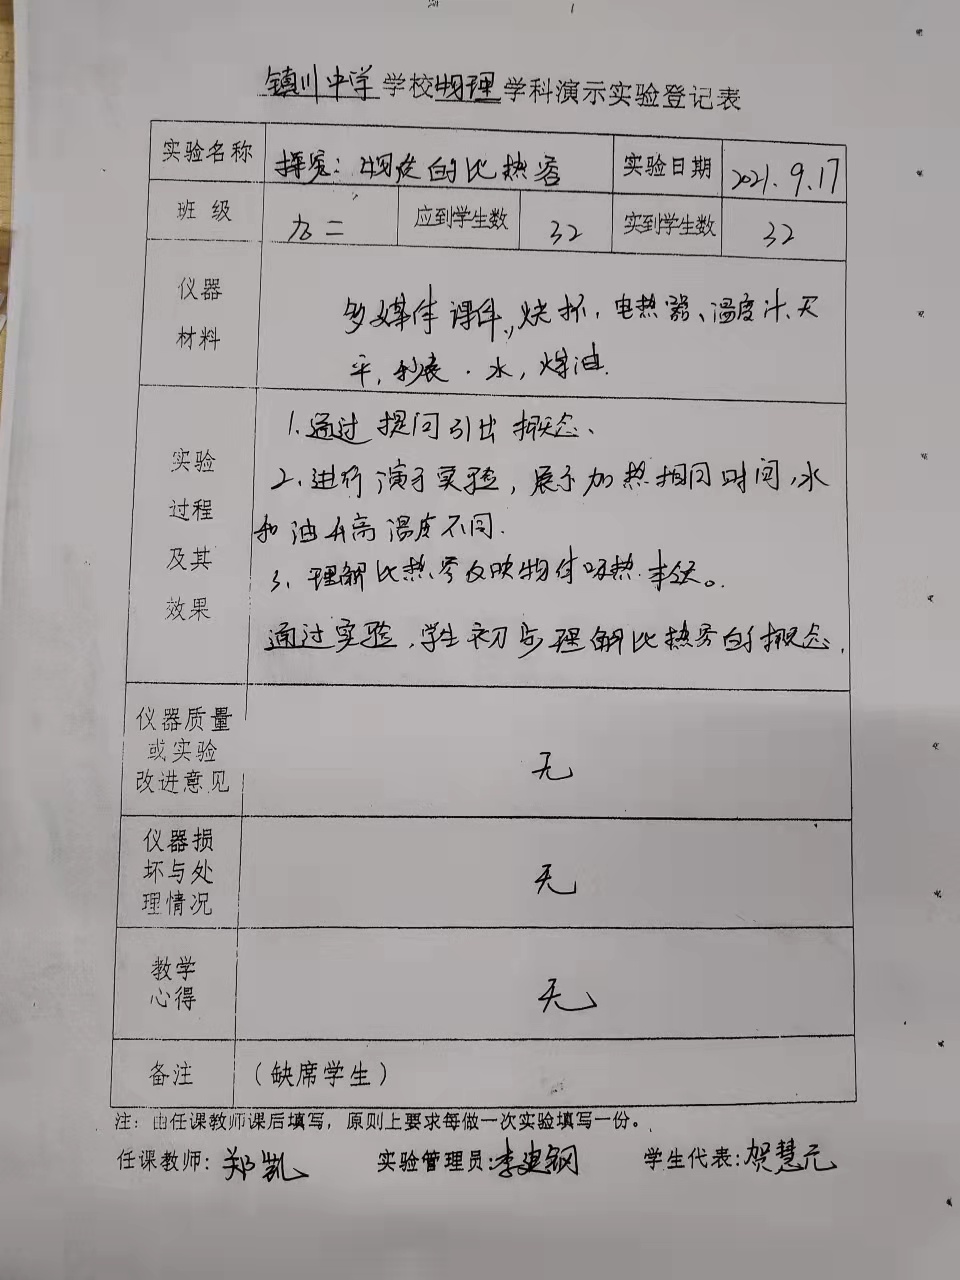 镇川中学学校物理学科演示实验登记表
实验名称 探究：物质的比热容 实验日期 2021.9.17
班 级 九二 应到学生数 32 实到学生数 32
仪器
材料
多媒体课件，烧杯，电热器、温度计、天
平，秒表．水，煤油．
实验
过程
及其
效果
1.通过提问引出概念、
2、进行演示实验，展示加热相同时间，水
和油升高温度不同．
3、理解比热容反映物体吸热本领。
通过实验，学生初步理解比热容的概念．
仪器质量
或实验
改进意见
无
仪器损
坏与处
理情况
无
教学
心得
无
备注 （缺席学生）
注：由任课教师课后填写，原则上要求每做一次实验填写一份。
任课教师：郑凯 实验管理员：李建钢 学生代表：贺慧元